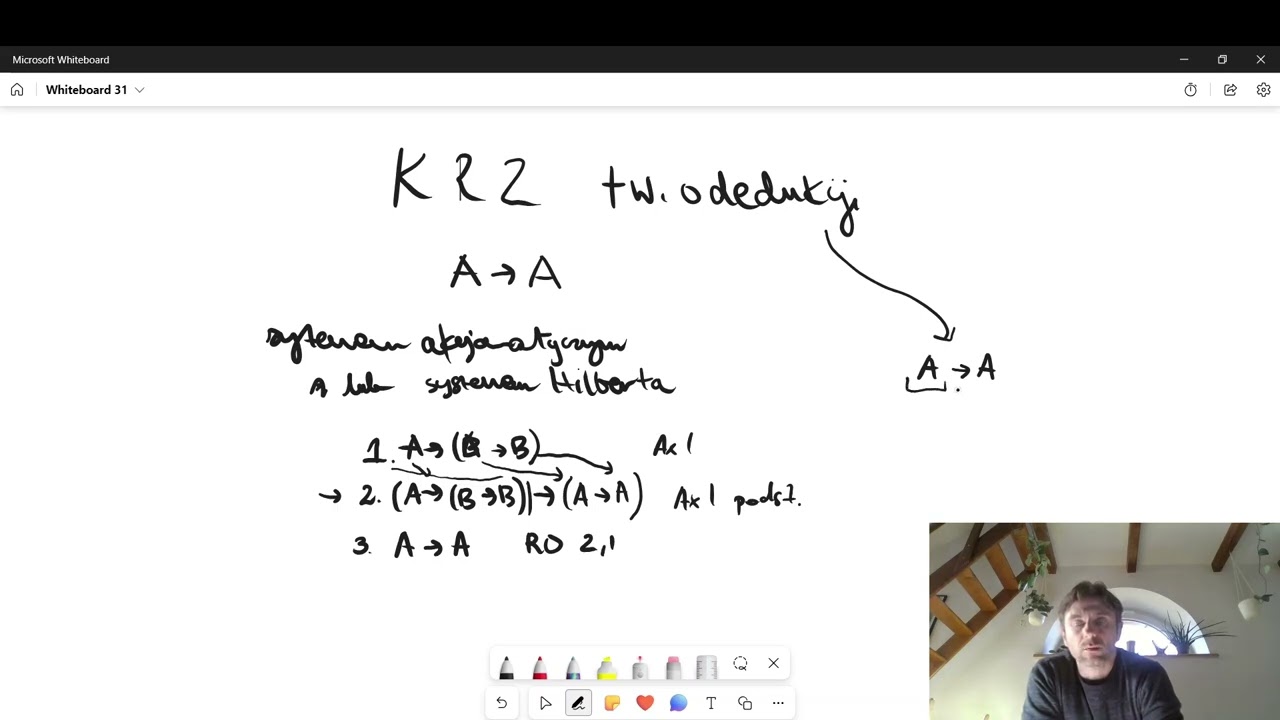 Microsoft Whiteboard
Whiteboard 31
KRZ tw. o dedukcji
A → A
systemem aksjomatycznym
lub systemem Hilberta
A → A
1. A → (B → B) Ax 1
→ 2. (A → (B → B)) → (A → A) Ax 1 podst.
3. A → A RO 2,1